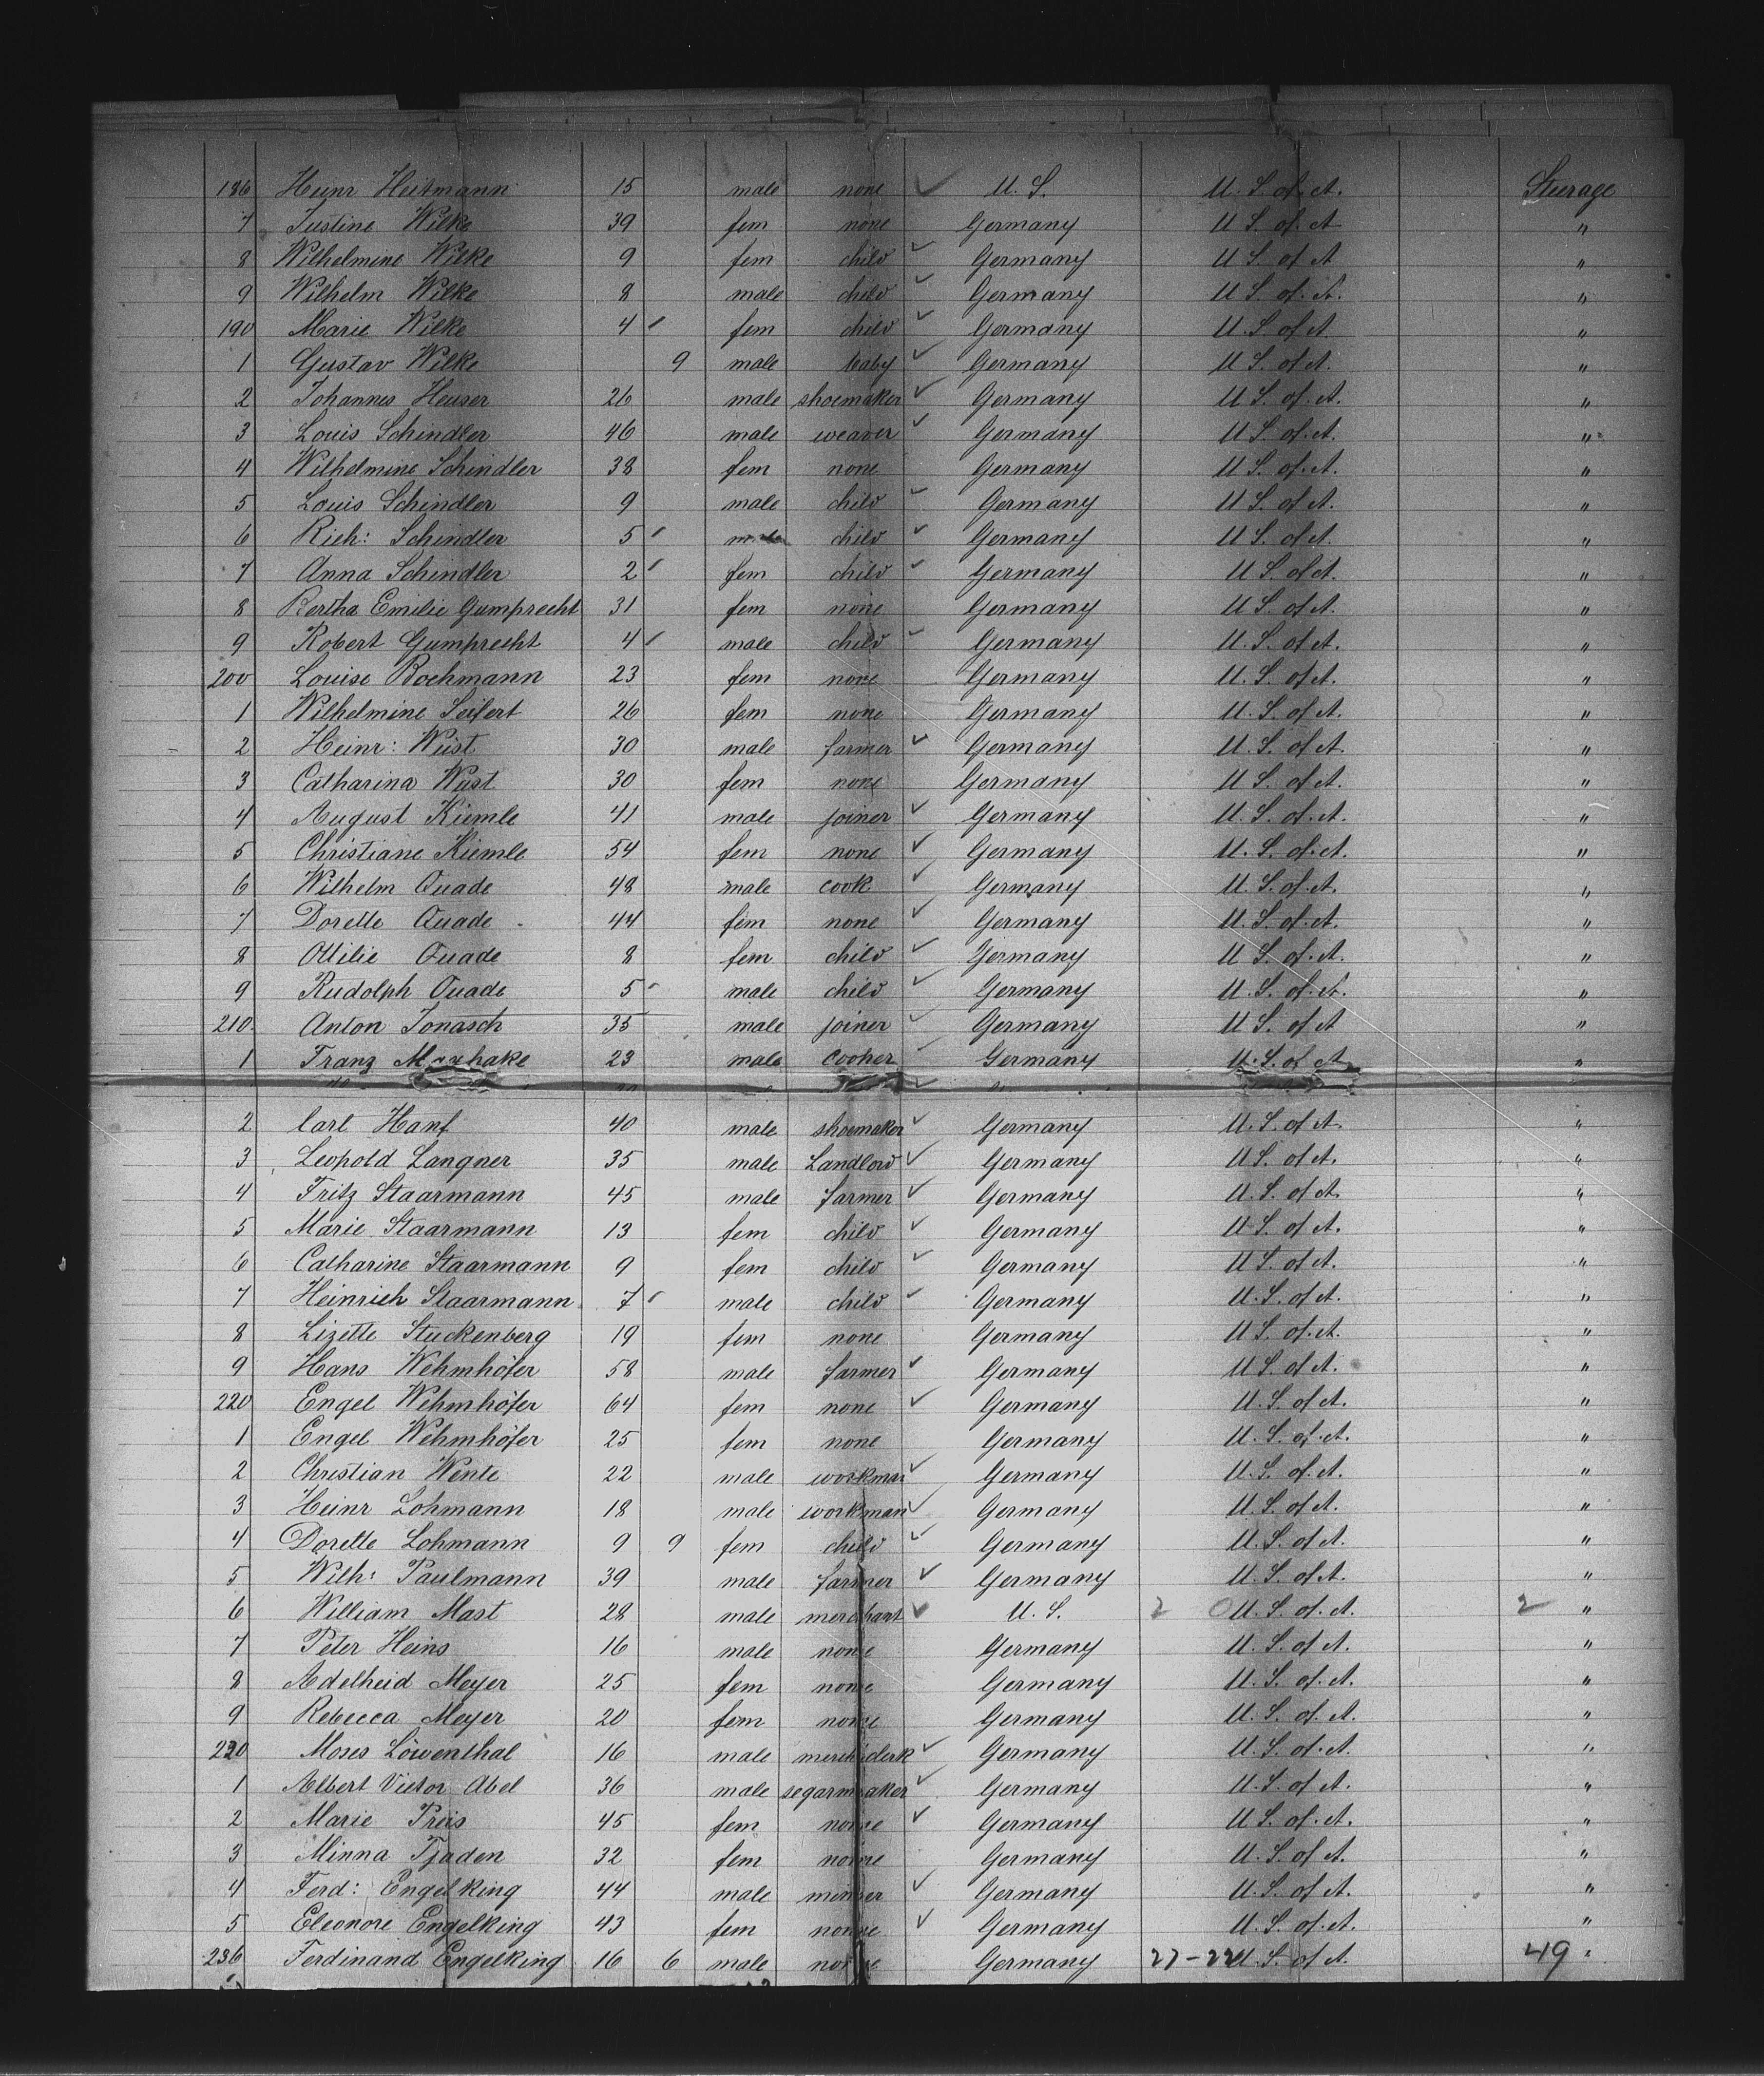 186 Heinr Heitmann 15 male none ✓ U. S. U. S. of A. Steerage
7 Justine Wilke 39 fem none Germany U S. of A "
8 Wilhelmine Wilke 9 fem child ✓ Germany U S. of A "
9 Wilhelm Wilke 8 male child ✓ Germany U S. of A. "
190 Marie Wilke 4 fem child ✓ Germany U. S. of A "
1 Gustav Wilke 9 male baby ✓ Germany U S. of A. "
2 Johannes Heuser 26 male shoemaker ✓ Germany U S. of A. "
3 Louis Schindler 46 male weaver ✓ Germany U S. of A. "
4 Wilhelmine Schindler 38 fem none Germany U S. of A. "
5 Louis Schindler 9 male child ✓ Germany U S. of A. "
6 Rich: Schindler 5 male child ✓ Germany U S. of A. "
7 Anna Schindler 2 fem child ✓ Germany U S. of A. "
8 Bertha Emilie Gumprecht 31 fem none Germany U S. of A. "
9 Robert Gumprecht 4 male child ✓ Germany U. S. of A. "
200 Louise Bochmann 23 fem none Germany U. S. of A. "
1 Wilhelmine Seifert 26 fem none Germany U. S. of A. "
2 Heinr: Wüst 30 male farmer ✓ Germany U. S. of A. "
3 Catharina Wüst 30 fem none Germany U. S. of A. "
4 August Kiemle 41 male joiner ✓ Germany U. S. of A. "
5 Christiane Kiemle 54 fem none ✓ Germany U. S. of A. "
6 Wilhelm Quade 48 male cook ✓ Germany U. S. of A. "
7 Dorette Quade 44 fem none ✓ Germany U. S. of A. "
8 Ottilie Quade 8 fem child ✓ Germany U S. of A. "
9 Rudolph Quade 5 male child ✓ Germany U. S. of A. "
210 Anton Jonasch 35 male joiner ✓ Germany U S. of A "
1 Franz Maxhake 23 male cooper ✓ Germany U. S. of A "
2 Carl Hanf 40 male shoemaker ✓ Germany U. S. of A. "
3 Leopold Langner 35 male Landlord ✓ Germany U S. of A. "
4 Fritz Staarmann 45 male farmer ✓ Germany U. S. of A. "
5 Marie Staarmann 13 fem child ✓ Germany U S. of A. "
6 Catharine Staarmann 9 fem child ✓ Germany U S. of A. "
7 Heinrich Staarmann 7 male child ✓ Germany U. S. of A. "
8 Lizette Stuckenberg 19 fem none Germany U S. of A. "
9 Hans Wehmhöfer 58 male farmer ✓ Germany U S. of A. "
220 Engel Wehmhöfer 64 fem none ✓ Germany U. S. of A. "
1 Engel Wehmhöfer 25 fem none Germany U. S. of A. "
2 Christian Wente 22 male workman ✓ Germany U. S. of A. "
3 Heinr Lohmann 18 male workman ✓ Germany U. S. of A. "
4 Dorette Lohmann 9 9 fem child ✓ Germany U. S. of A. "
5 Wilh: Paulmann 39 male farmer ✓ Germany U. S. of A. "
6 William Mast 28 male merchant ✓ U. S. 2 U. S. of A. 2 "
7 Peter Heins 16 male none Germany U. S. of A. "
8 Adelheid Meyer 25 fem none Germany U. S. of A. "
9 Rebecca Meyer 20 fem none Germany U. S. of A. "
220 Moses Löwenthal 16 male merch:clerk ✓ Germany U. S. of A. "
1 Albert Victor Abel 36 male segarmaker ✓ Germany U. S. of A. "
2 Marie Preis 45 fem none ✓ Germany U S. of A. "
3 Minna Tjaden 32 fem none Germany U. S. of A. "
4 Ferd: Engelking 44 male minner ✓ Germany U. S. of A. "
5 Eleonore Engelking 43 fem none ✓ Germany U. S. of A. "
236 Ferdinand Engelking 16 6 male none Germany 27-22 U. S. of A. 49 "